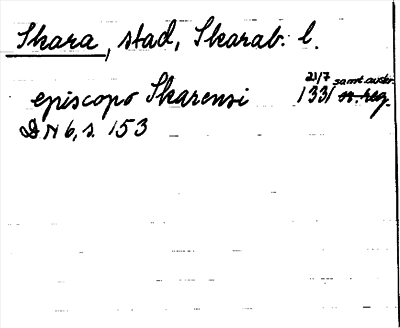 Skara, stad, Skarab. l.
21/7 samt. avskr.
episcopo Skarensi 1331 or. reg.
DN 6, s. 153